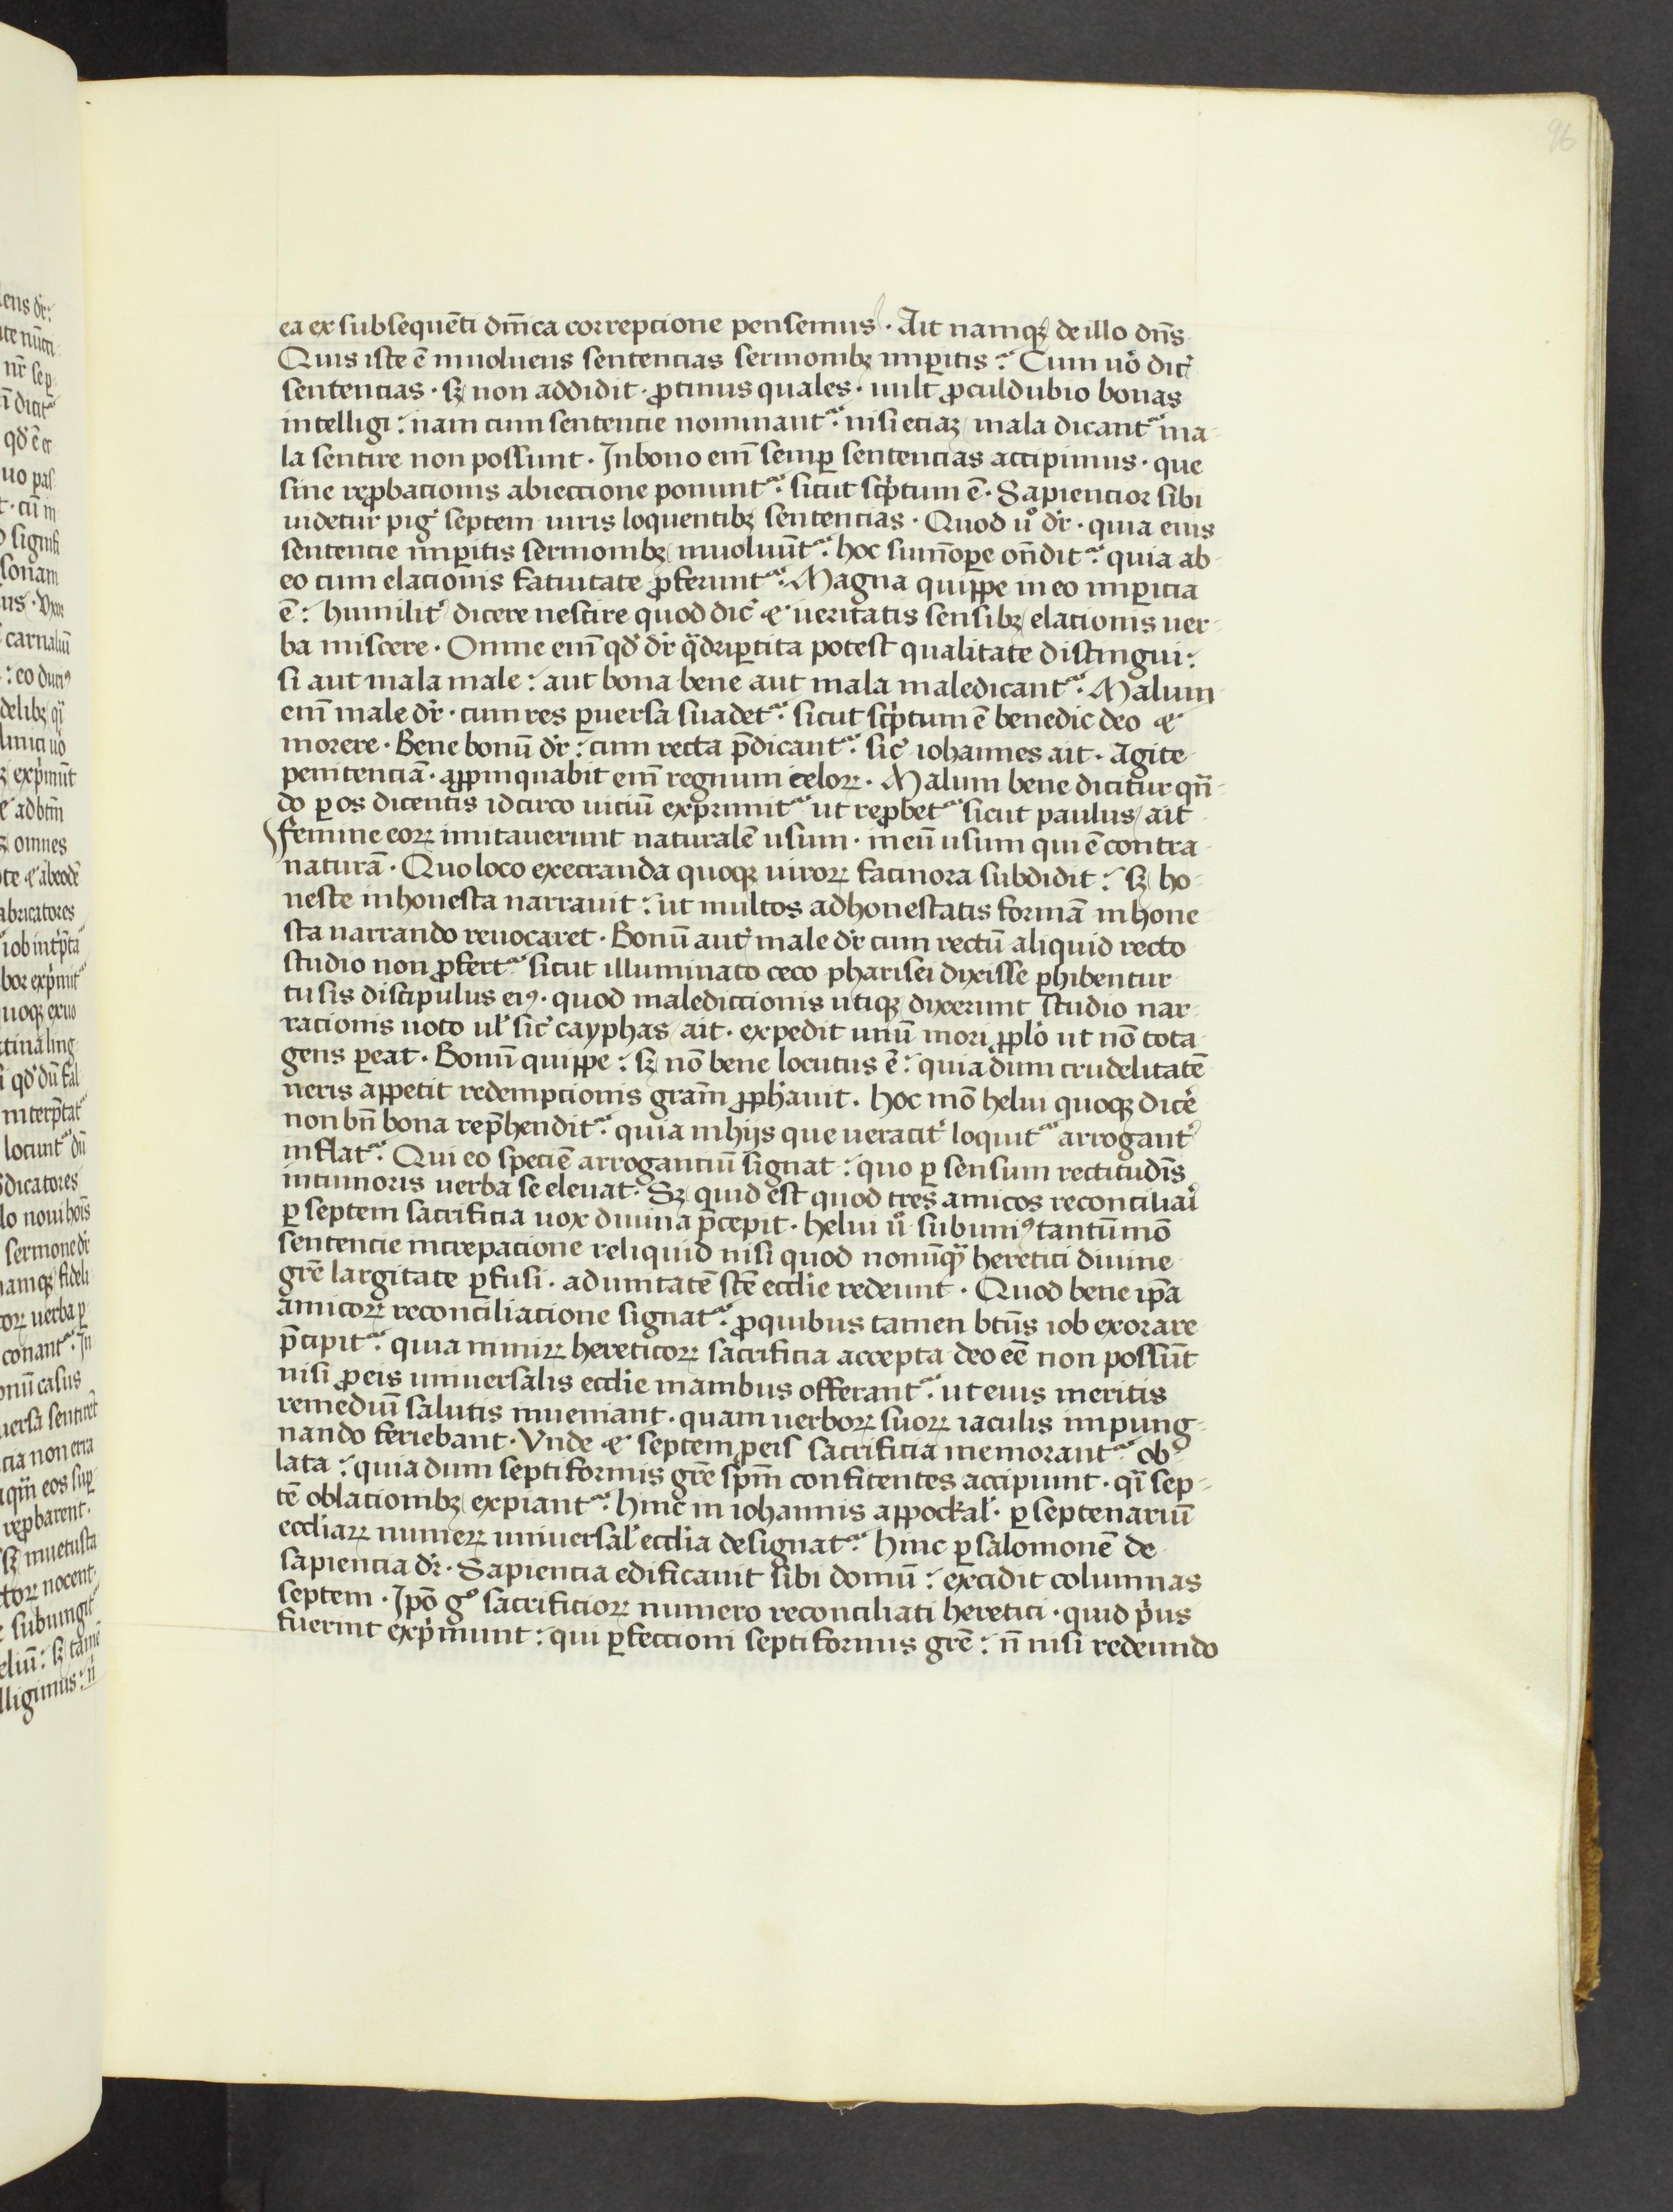 96
ea ex subsequēti dn̄ica correpcione pensemus · Ait namqꝫ de illo dn̄s
Quis iste ē inuoluens sentencias sermonibꝫ imꝑitis · Cum uo̊ dic̉
sentencias · sꝫ non addidit · ꝓtinus quales · uult ꝓculdubio bonas
intelligi : nam cum sentencie nominant᷑ · nisi eciaꝫ mala dicant᷑ ma-
la sentire non possunt · In bono em̄ semꝑ sentencias accipimus · que
sine reꝓbacionis abieccione ponunt᷑ · sicut sc̉ptum ē · Sapiencior sibi
uidetur pig̉ septem uiris loquentibꝫ sentencias · Quod ů dr̉ · quia eius
sentencie imꝑitis sermonibꝫ inuoluūt᷑ · hoc sum̄oꝑe on̄dit᷑ · quia ab
eo cum elacionis fatuitate ꝓferunt᷑ · Magna quippe in eo imꝑicia
ē : humilit̉ dicere nescire quod dic̉ ⁊ ueritatis sensibꝫ elacionis uer-
ba miscere · Omne em̄ qd̉ dr̉ q̈driꝑtita potest qualitate distingui :
si aut mala male : aut bona bene aut mala male dicant᷑ · Malum
em̄ male dr̉ · cum res ꝑuersa suadet᷑ · sicut sc̉ptum ē benedic deo ⁊
morere · Bene bonū dr̉ : cum recta p̄dicant᷑ · sic̉ iohannes ait · Agite
penitenciā · aꝓpinquabit em̄ regnum celoꝝ · Malum bene dicitur qn̄-
do ꝑ os dicentis idcirco uiciū exprimit᷑ ut reꝓbet᷑ sicut paulus ait
femine eoꝝ imitauerunt naturalē usum · in eū usum qui ē contra
naturā · Quo loco execranda quoqꝫ uiroꝝ facinora subdidit : sꝫ ho-
neste inhonesta narrauit : ut multos ad honestatis formā inhone
sta narrando reuocaret · Bonū aut̉ male dr̉ cum rectū aliquid recto
studio non ꝓfert᷑ sicut illuminato ceco pharisei dixisse ꝑhibentur
tu sis discipulus eiꝰ · quod malediccionis utiqꝫ dixerunt studio nar-
racionis uoto ul̉ sic̉ cayphas ait · expedit unū mori ꝓplo̊ ut nō tota
gens ꝑeat · Bonū quippe : sꝫ nō bene locutus ē : quia dum crudelitatē
neris appetit redempcionis gram̄ ꝓph̉auit · hoc mō heliu quoqꝫ dicē
non bn̄ bona rep̄hendit᷑ · quia in hijs que ueracit̉ loquit᷑ arrogant̉
inflat᷑ · Qui eo speciē arroganciū signat : quo ꝑ sensum rectitudīs
intumoris uerba se eleuat · Sꝫ quid est quod tres amicos reconciliar̉
ꝑ septem sacrificia uox diuina p̄cepit · heliu ů sub uniꝰ tantūmō
sentencie increpacione reliquid nisi quod nonūqꝫ heretici diuine
grē largitate ꝑfusi · ad unitatē scē ecclīe redeunt · Quod bene ip̄a
amicoꝝ reconciliacione signat᷑ · ꝓ quibus tamen btūs iob exorare
p̄cipit᷑ · quia nimiꝝ hereticoꝝ sacrificia accepta deo eē non possūt
nisi ꝓ eis uniuersalis ecclīe manibus offerant᷑ · ut eius meritis
remediū salutis inueniant · quam uerboꝝ suoꝝ iaculis impung-
nando feriebant · Vnde ⁊ septem ꝓ eis sacrificia memorant᷑ ob-
lata : quia dum septiformis grē spm̄ confitentes accipiunt · qi̊ sep-
tē oblacionibꝫ expiant᷑ · hinc in iohannis appockal̉ · ꝑ septenariū
ecclīaꝝ numeꝝ uniuersal̉ ecclīa designat᷑ · hinc ꝑ salomonē de
sapiencia dr̉ · Sapiencia edificauit sibi domū : excidit columnas
septem · Ipō gͦ sacrificioꝝ numero reconciliati heretici · quid p̉us
fuerint exp̉munt : qui ꝑfeccioni septiformis grē : n̄ nisi redeundo